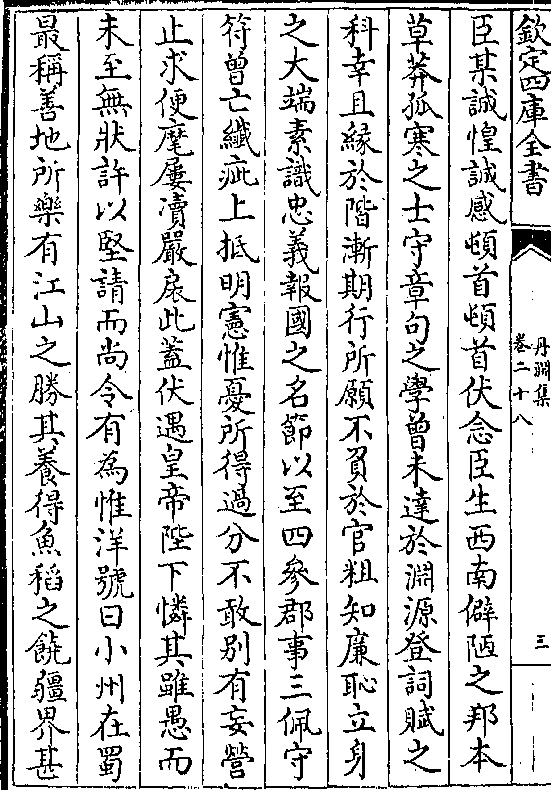 欽定四庫全書
丹淵集
卷二十八
三
臣某誠惶誠感頓首頓首伏念臣生西南僻陋之邦本
草莽孤寒之士守章句之學曾未達於淵源登詞賦之
科幸且緣於階漸期行所願不負於官粗知廉恥立身
之大端素識忠義報國之名節以至四參郡事三佩守
符曾亡纖疵上抵明憲惟憂所得過分不敢别有妄營
止求便麾屢凟嚴扆此蓋伏遇皇帝陛下憐其雖愚而
未至無狀許以堅請而尚令有為惟洋號曰小州在蜀
最稱善地所樂有江山之勝其養得魚稻之饒疆界甚